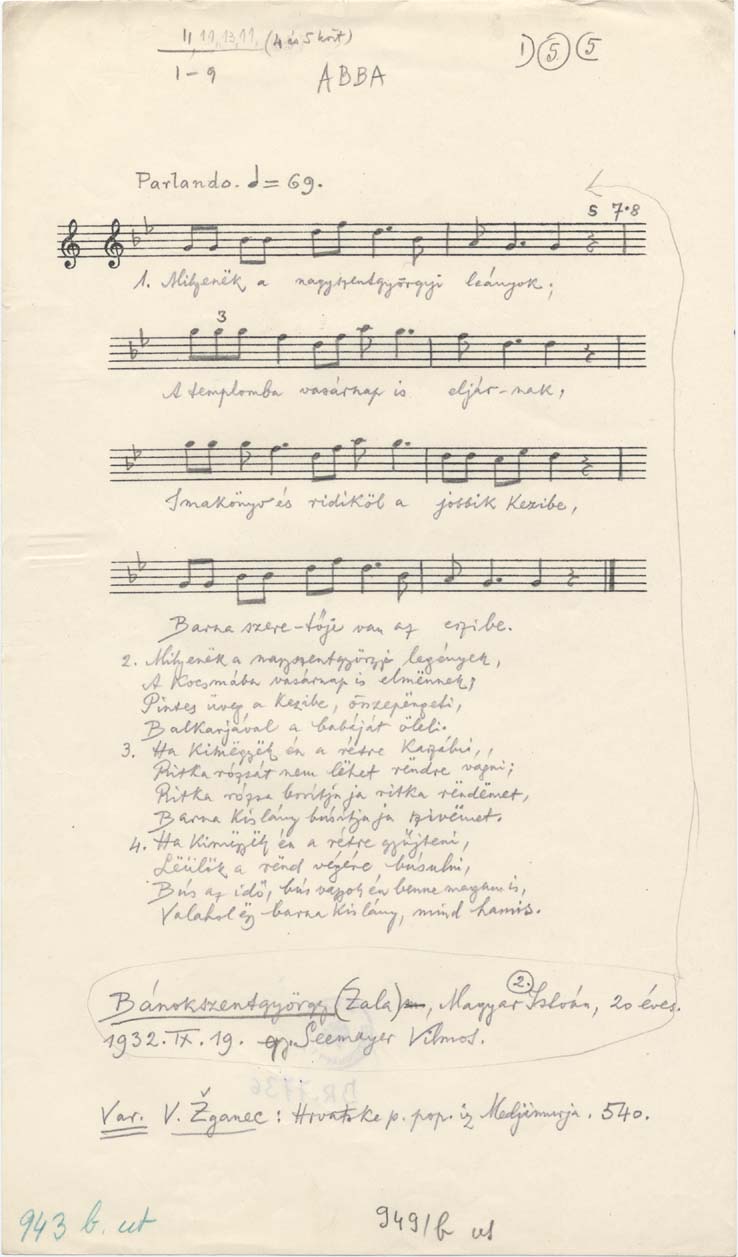 11, 11, 13, 11, (4 és 5 )
1) 5 5
1–9
ABBA
Parlando. = 69.
5 7•8
1. Milyenëk a nagyszentgyörgyi leányok;
3
A templomba vasárnap is eljár-nak;
Imakönyv és ridiköl a jobbik kezibe,
Barna szere-tője van az eszibe.
2. Milyenëk a nagyszentgyörgyi legények,
A kocsmába vasárnap is elmënnek;
Pintes üveg a kezibe, összepëngeti,
Balkarjával a babáját öleli.
3. Ha kimëgyëk én a rétre kaszálni,
Ritka rózsát nem lëhet rëndre vágni;
Ritka rózsa borítja ritka rëndëmet,
Barna kislány búsítja szivëmet.
4. Ha kimëgyëk én a rétre gyűjteni,
Leülök a rënd végére búsulni,
Bús az idő, bús vagyok én benne magam is,
Valahol ëgy barna kislány, mind hamis.
Bánokszentgyörgy (Zala), Magyar István, 20 éves.
2.
1932. IX. 19. Seemayer Vilmos.
Var. V. Žganec: Hrvatske p. pop. iz Medjimurja. 540.
943 b. ut
949/b ut